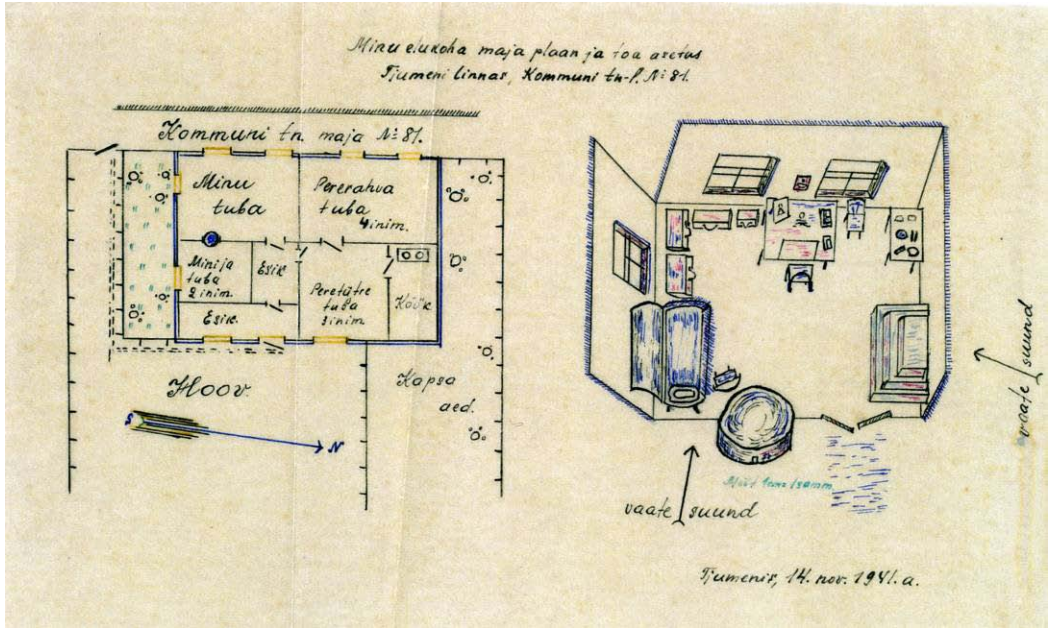 Minu elukoha maja plaan ja toa asetus
Tjumeni linnas, Kommuni tn-l. № 81.
Kommuni tn. maja № 81.
Minu
tuba
Pererahva
tuba
4 inim.
Minija
tuba
2 inim.
Esik
Peretütre
tuba
3 inim.
Köök
Esik.
Hoov.
Kapsa
aed.
S
N
vaate suund
vaate suund
Tjumenis, 14. nov. 1941. a.